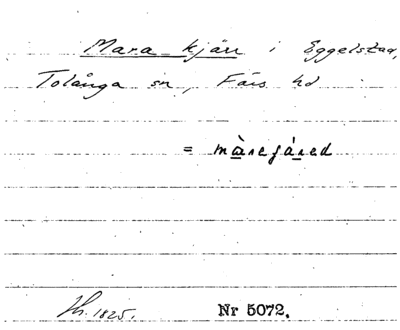 Mara kjärr i Eggelstad,
Tolånga sn, Färs hd
= màregáred
1825.
Nr 5072.